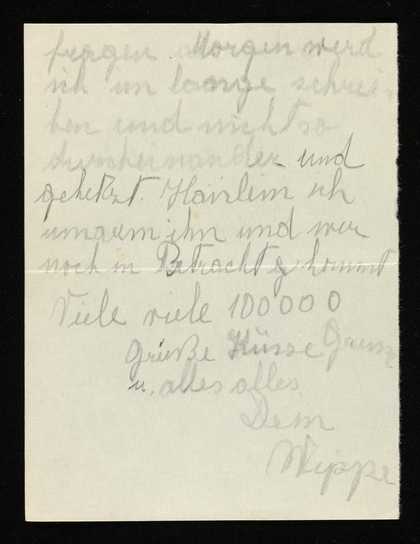 fragen. Morgen werd
ich im lange schrei-
ben und nicht so
durcheinander und
gehetzt. ich
umarm ihn und wer
noch in Betracht kommt
Viele viele 100000
Grüße Küsse
u. alles alles
Dein
Wippe